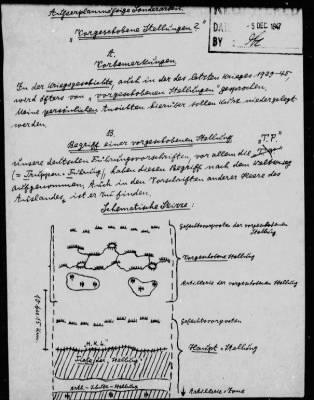 Außerplanmäßige Sonderarbeit
"Vorgeschobene Stellungen"
DATE 5 DEC 1947
BY
A.
Vorbemerkungen
In der Kriegsgeschichte, auch in der des letzten Krieges 1939-45,
wird öfters von "vorgeschobenen Stellungen" gesprochen.
Meine persönlichen Ansichten hierüber sollen kurz niedergelegt
werden.
B.
Begriff einer vorgeschobenen Stellung
"T.F."
Unsere deutschen Führungsvorschriften, vor allem die
(= Truppen-Führung), haben diesen Begriff nach dem Weltkrieg
aufgenommen. Auch in den Vorschriften anderer Heere des
Auslandes ist er zu finden.
Schematische Skizze:
Gefechtsvorposten der vorgeschobenen
Stellung
Vorgeschobene Stellung
Artillerie der vorgeschobenen Stellung
10 bis 15 km
Gefechtsvorposten
H.K.L.
Haupt-Stellung
Artl.-Schutz-Stellung
Artillerie-Zone